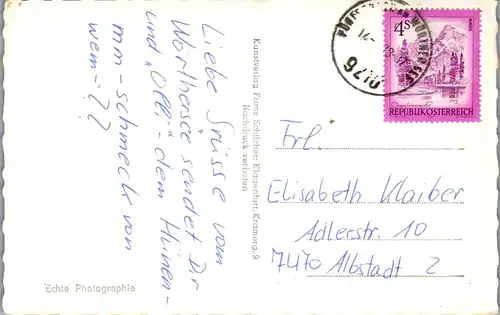 Liebe Grüsse vom
Wörthersee sendet Dir
und "Olli" - dem Hünen -
mm - schmeck von
wem - ??
Echte Photographie
Kunstverlag Franz Schilcher, Klagenfurt, Kramerg. 9
Nachdruck verboten
9210
4S
REPUBLIK ÖSTERREICH
Frl.
Elisabeth Klaiber
Adlerstr. 10
7470 Albstadt 2